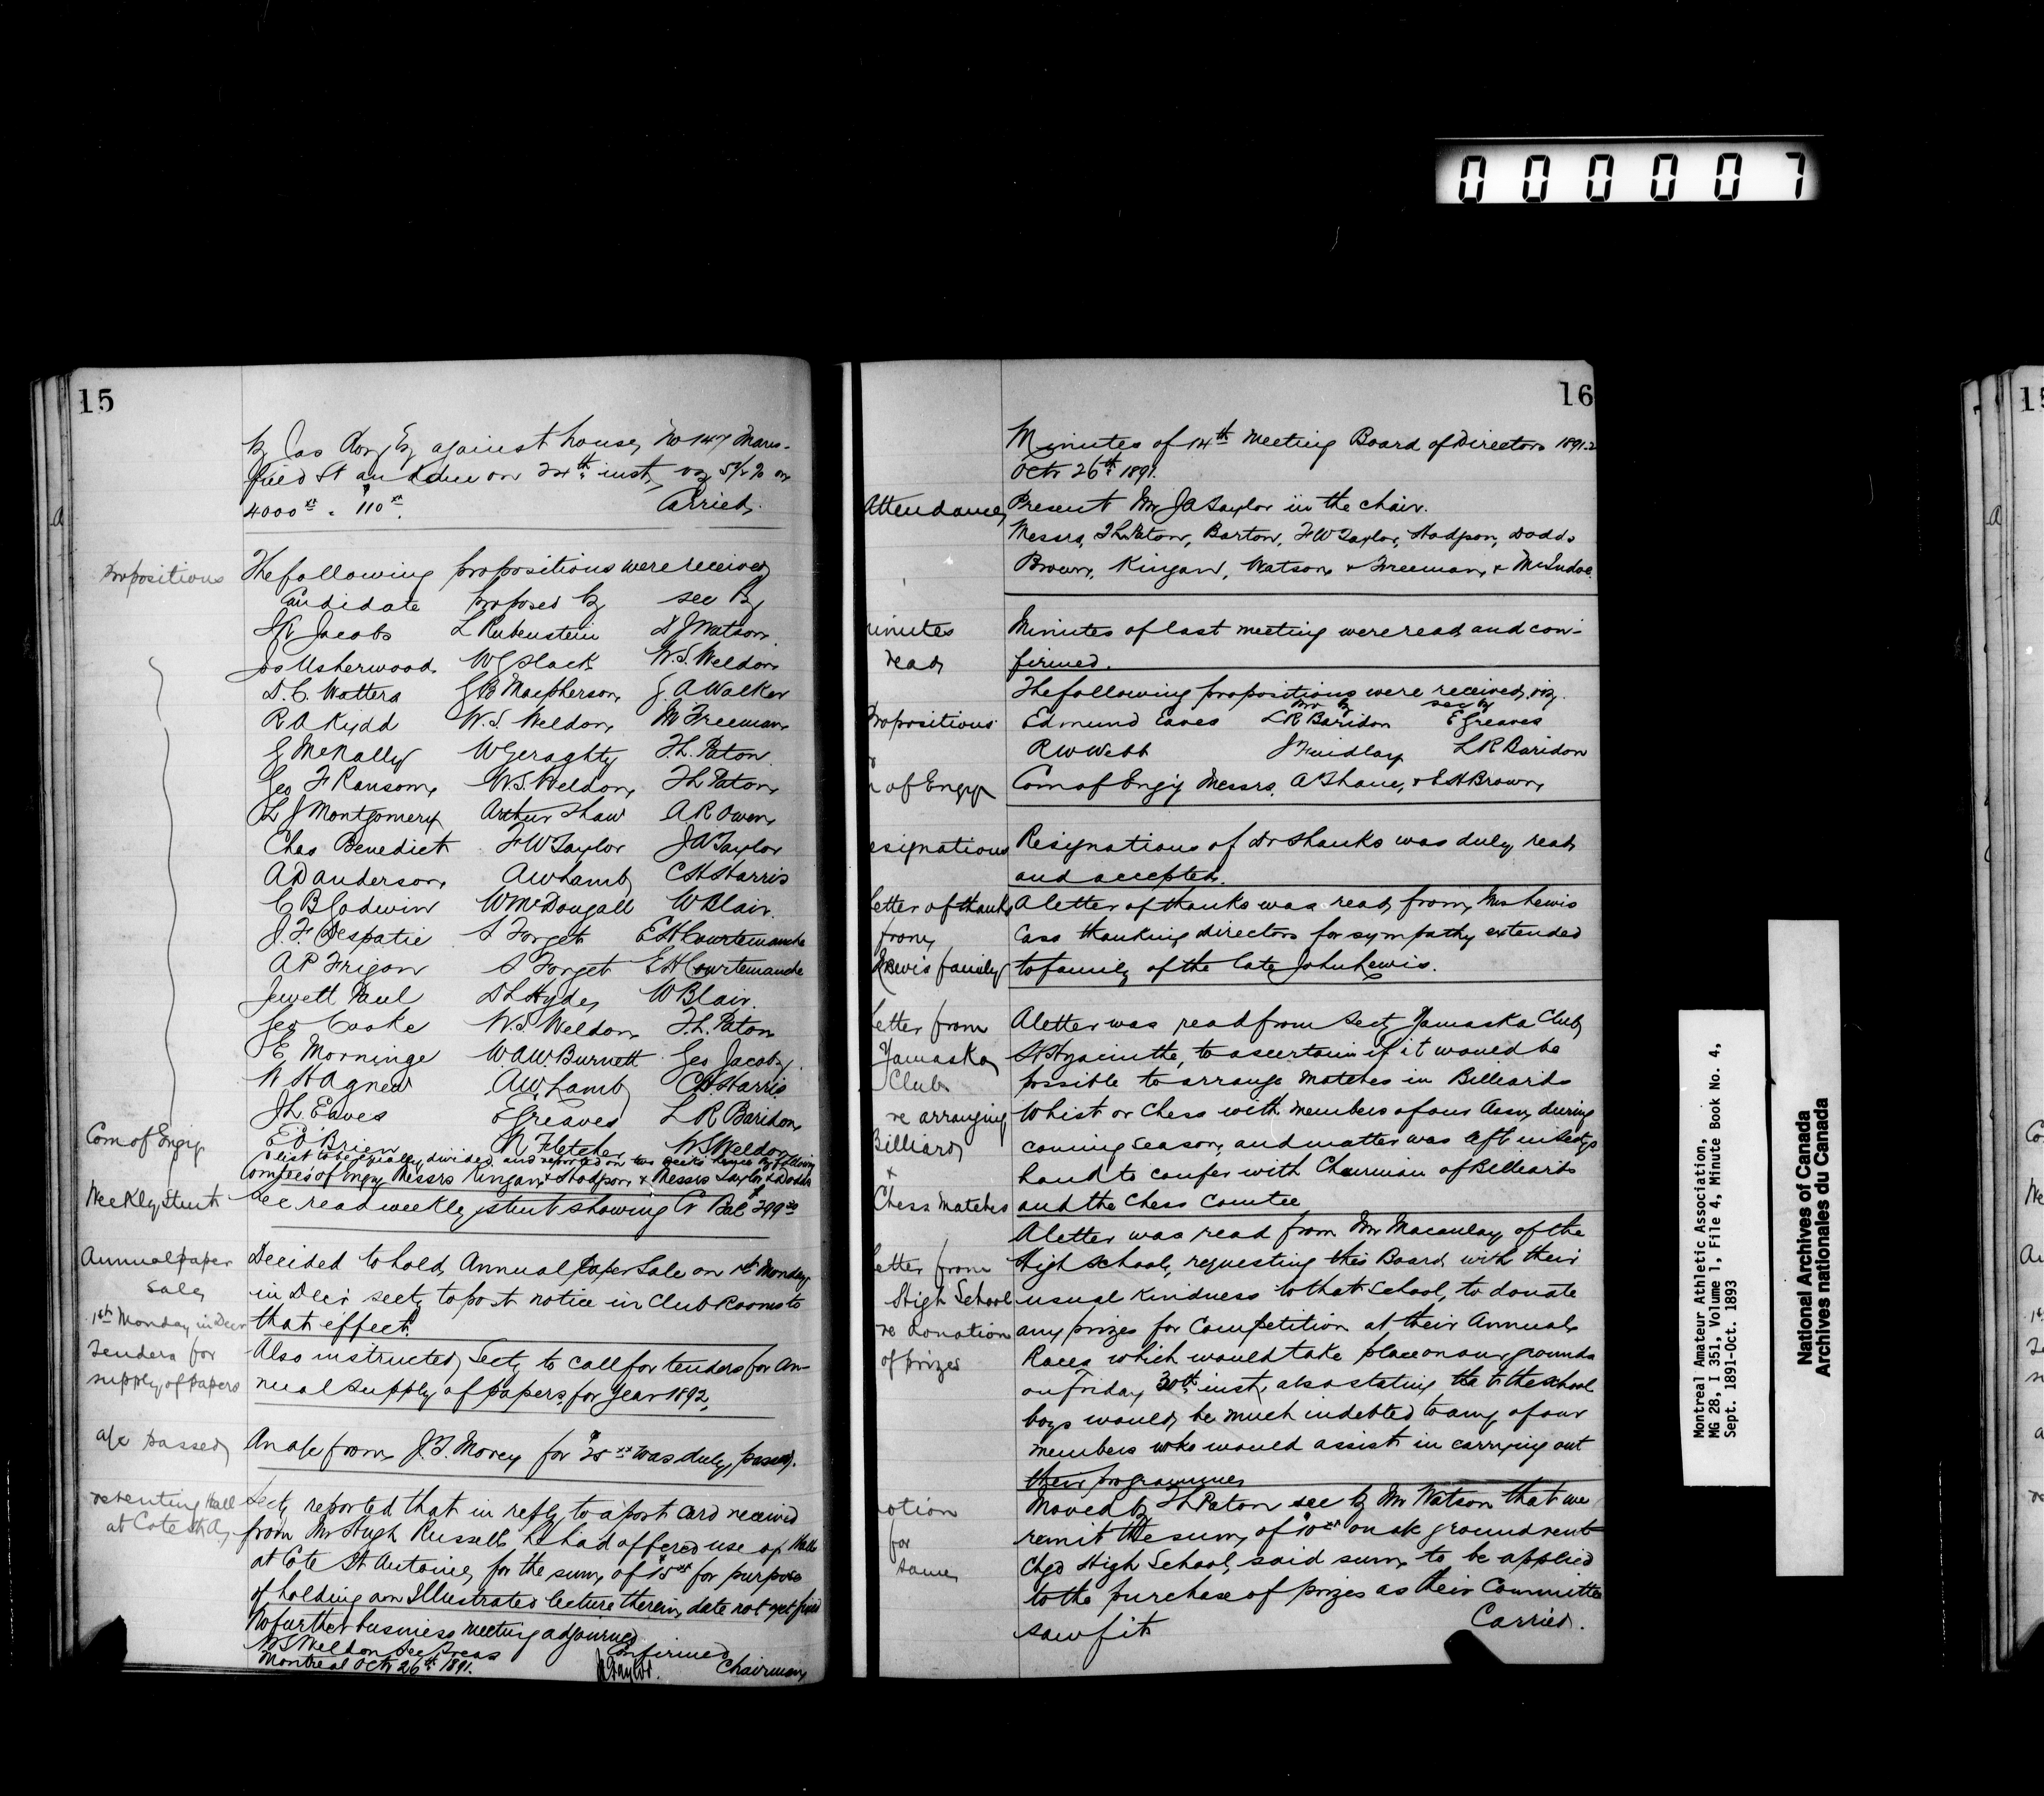 0 0 0 0 0 7
15
by Jas Cong Esq against house, No 147 Mans-
field St and due on 24th inst, viz 5½% on
4000xx . $110xx. Carried.
Propositions
The following propositions were received
Candidate proposed by sec By
Jacobs L Rubenstein D J Watson
Jos Usherwood W G Slack W.S. Weldon
D.C. Watters G B Macpherson, J. A Walker
R A Kydd W.S. Weldon, M Freeman
G McNally W Geraghty T.L. Paton
Geo F Ransom, W.S. Weldon, T L Paton,
L J Montgomery Arthur Shaw A R Owen,
Chas Benedict F W Taylor J A Taylor
A D Anderson, A W Lamb C H Harris
C B Godwin W McDougall W Blair.
J. F. Despatie S Forget E H Courtemanche
A P Frigon S Forget E H Courtemanche
Jewett Paul D L Hyde, W Blair.
Geo Cooke W.S. Weldon, T.L. Paton
E. Morninge W.A.W. Burnett Geo Jacobs
W H Agnew A.W. Lamb C H Harris
J L Eaves E Greaves L R Baridon,
E O'Brien N Fletcher W S Weldon
Com of Engy
list to be equally divided and reported on two weeks hence by following
Comtees of Engy Messrs Kingan & Hodgson, & Messrs Taylor & Dodds
Weekly Stmt
Sec. read weekly stmt showing Cr Bal $299
Annual paper
Sale
1st Monday in Decr
Decided to hold, Annual Paper Sale on 1st Monday
in Decr secty to post notice in Club Rooms to
that effect.
Tenders for
supply of papers
Also instructed, Secty to call for tenders for An-
nual supply of papers, for year 1892,
a/c passed
An a/c from, J. T. Morey for $25xx was duly, passed.
re renting Hall
at Cote St A,
Secty reported that in reply to a post card received
from Mr Hugh Russell, he had offered use of Hall
at Cote St Antoine, for the sum, of $15xx for purpose
of holding an Illustrated lecture therein, date not yet fixed
No further business meeting adjourned
W S Weldon Sec Treas Confirmed
Montreal Octr 26th 1891. J A Taylor. Chairman,
16
Minutes of 14th Meeting Board of Directors 1891-2
Octr 26th 1891.
Attendance,
Present Mr J A Taylor in the chair.
Messrs, T L Paton, Barton, F W Taylor, Hodgson, Dodds
Brown, Kingan, Watson, & Freeman, & McIndoe.
inutes
read,
Minutes of last meeting were read and con-
firmed.
The following propositions were received, viz.
pro by sec by
Propositions
Edmund Eaves L R Baridon E Greaves
R W Webb J Findlay L R Baridon
of Engy
Com of Engy Messrs. A Shane, & E H Brown,
esignations
Resignations of Dr Shanks was duly read
and accepted.
letter of thanks
from,
Lewis family
A letter of thanks was read, from, Mrs Lewis
Cass thanking directors for sympathy extended
to family of the late John Lewis.
etter from
Yamaska
Club
re arranging
Billiard,
&
Chess Matches
A letter was read from Secty Yamaska Club
St Hyacinthe, to ascertain if it would be
possible to arrange matches in Billiards
Whist or Chess with members of our Assn, during
coming season, and matter was left in Sectys
hand to confer with Chairman of Billiards
and the Chess Comtee
etter from
High School
re donation
of prizes
A letter was read from Mr Macaulay of the
High School, requesting this Board, with their
usual kindness to that School, to donate
any prizes for Competition at their Annual
Races which would take place on our grounds
on Friday 30th inst, also stating tha t the school
boys would, be much indebted to any of our
members who would assist in carrying out
their programme,
otion
for
same,
Moved by T L Paton sec by Mr Watson that we
remit the sum, of $10xx on a/c ground rent
Chgd High School, said sum, to be applied
to the purchase of prizes as their Committee
saw fit Carried.
Montreal Amateur Athletic Association,
MG 28, I 351, Volume 1, File 4, Minute Book No. 4,
Sept. 1891-Oct. 1893
National Archives of Canada
Archives nationales du Canada